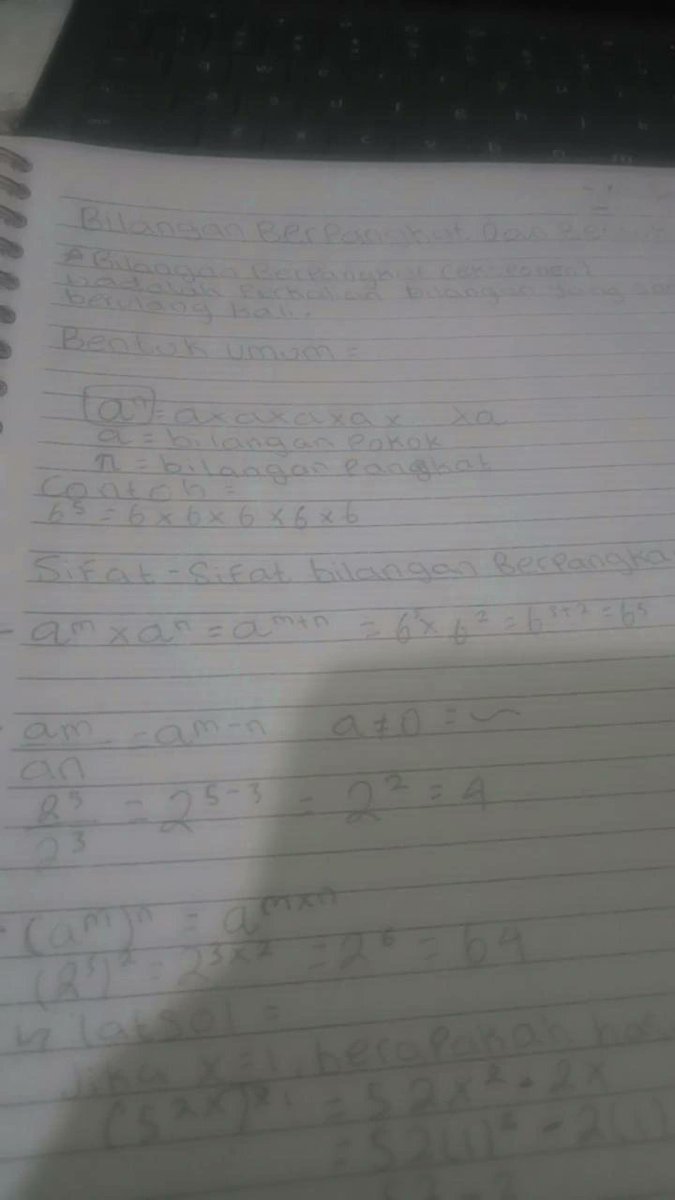 Bilangan Berpangkat Dan
* Bilangan Berpangkat
adalah Perkalian bilangan yang
berulang kali.
Bentuk umum =
aⁿ = a x a x a x a x x a
a = bilangan Pokok
n = bilangan Pangkat
Contoh =
6⁵ = 6 x 6 x 6 x 6 x 6
Sifat - Sifat bilangan Berpangka
- aᵐ x aⁿ = aᵐ⁺ⁿ = 6³ x 6² = 6³⁺² = 6⁵
am/an = aᵐ⁻ⁿ a ≠ 0 = ~
2⁵/2³ = 2⁵⁻³ = 2² = 4
- (aᵐ)ⁿ = aᵐˣⁿ
(2³)² = 2³ˣ² = 2⁶ = 64
↳ latsol =
Jika x = 1, berapakah
= 52x² - 2x
= 52(1)² - 2(1)